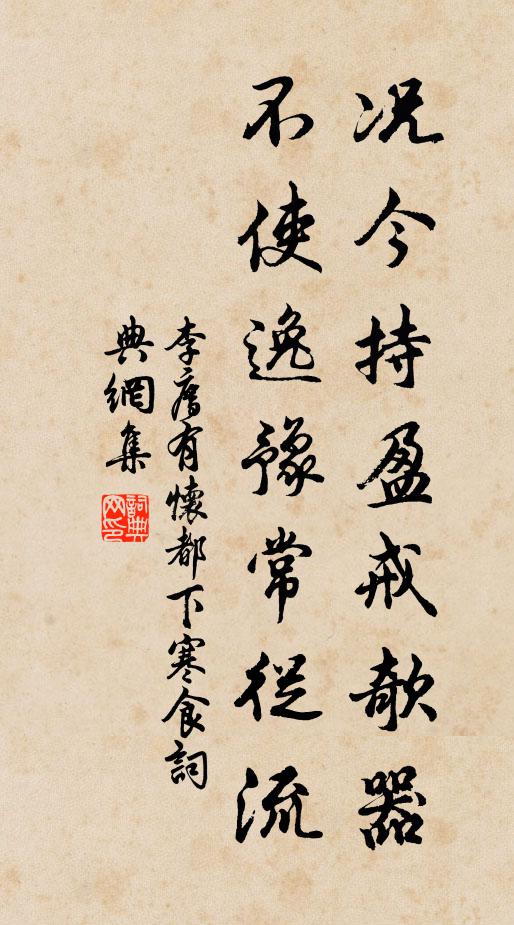 况今持盈戒欹器
不使逸豫常從流
李廌有懷都下寒食詞
典網集
詞典網印